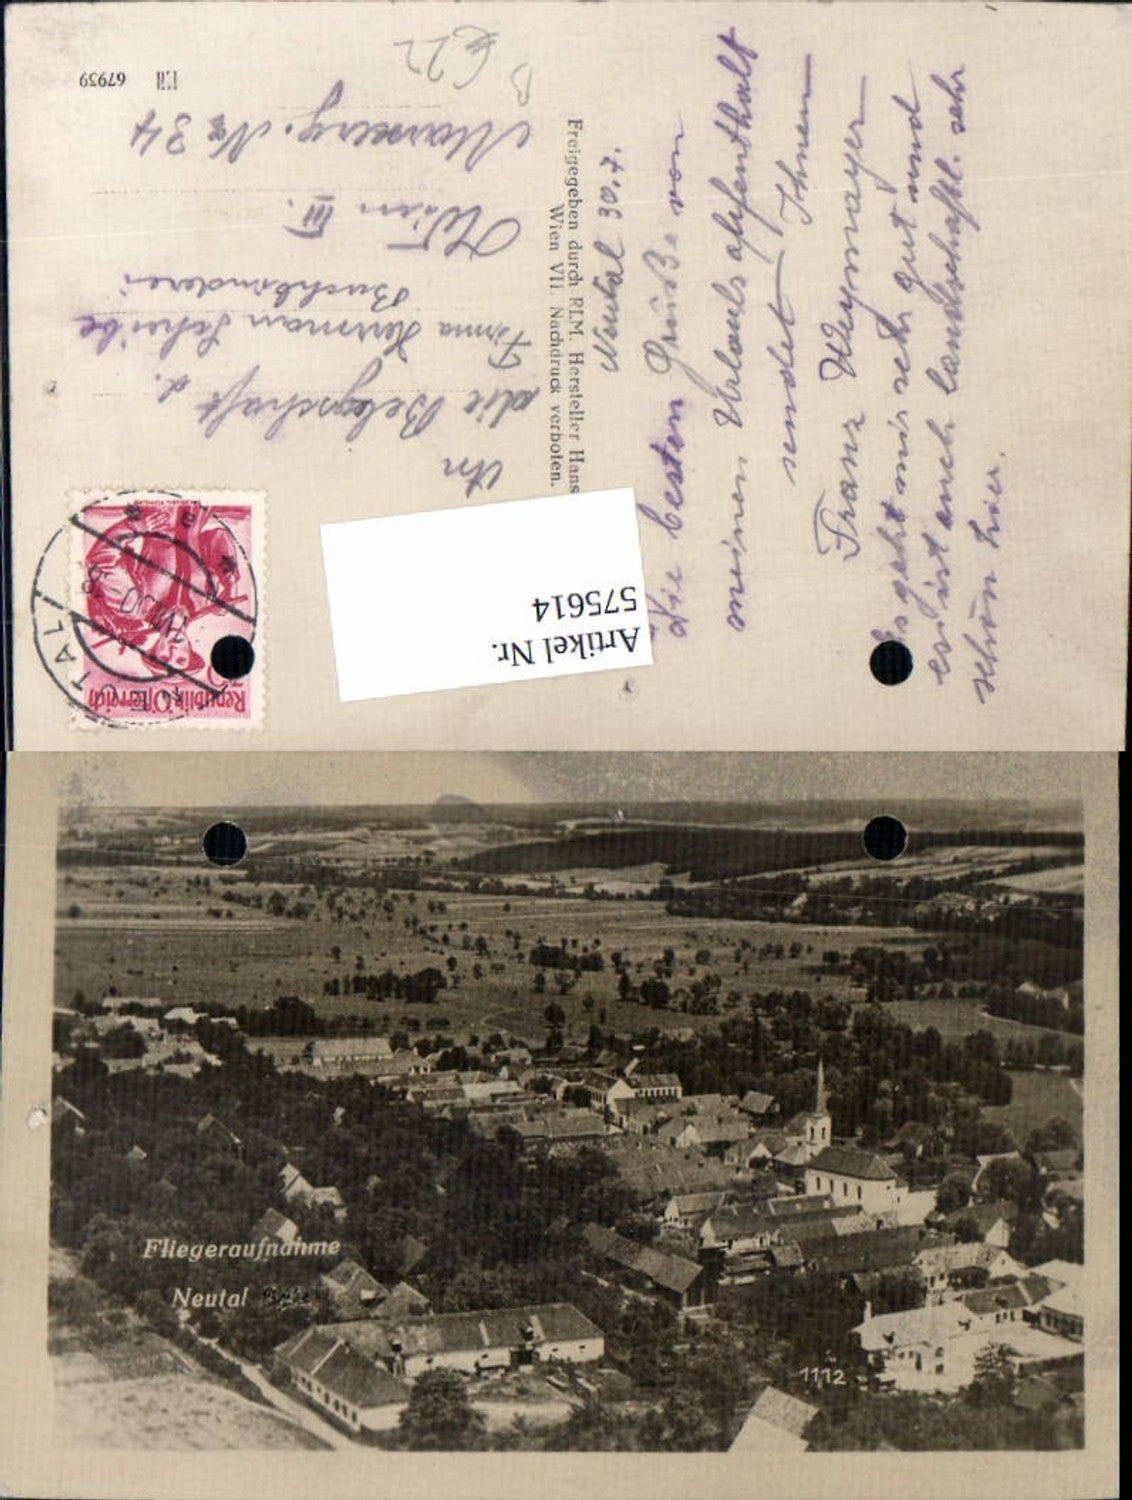 Neutal 30.7.
Die besten Grüße von
meinen Urlaubsaufenthalt
sendet Ihnen
Franz Weymayer
Es geht mir sehr gut und
es ist auch landschaftl. sehr
schön hier.
Freigegeben durch RLM. Hersteller Hans
Wien VII. Nachdruck verboten.
An
die Belegschaft d.
Firma Herrman Scheibe
Buchbinderei
Wien III.
Marxerg. No 34
67959
B
€ 22
Republik Österreich
NEUTAL
Artikel Nr.
575614
Fliegeraufnahme
Neutal
1112